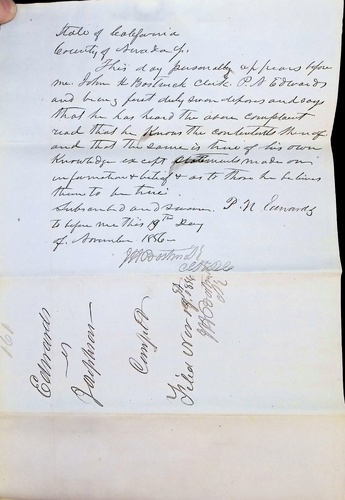 State of California
County of Nevada Ss.
This day personally appears before
me John H Bostwick Clerk. P. N Edwards
and being first duly sworn deposes and says
that he has heard the above complaint
read that he knows the contents thereof
and that the same is true of his own
Knowledge except statements made on
information & belief & as to those he believes
them to be true.
Subscribed and sworn. P. N Edwards
to before me this 19th Day
of November 1856—
Edwards
vs
Jackson
Compt
Filed Nov 19th 1856
161